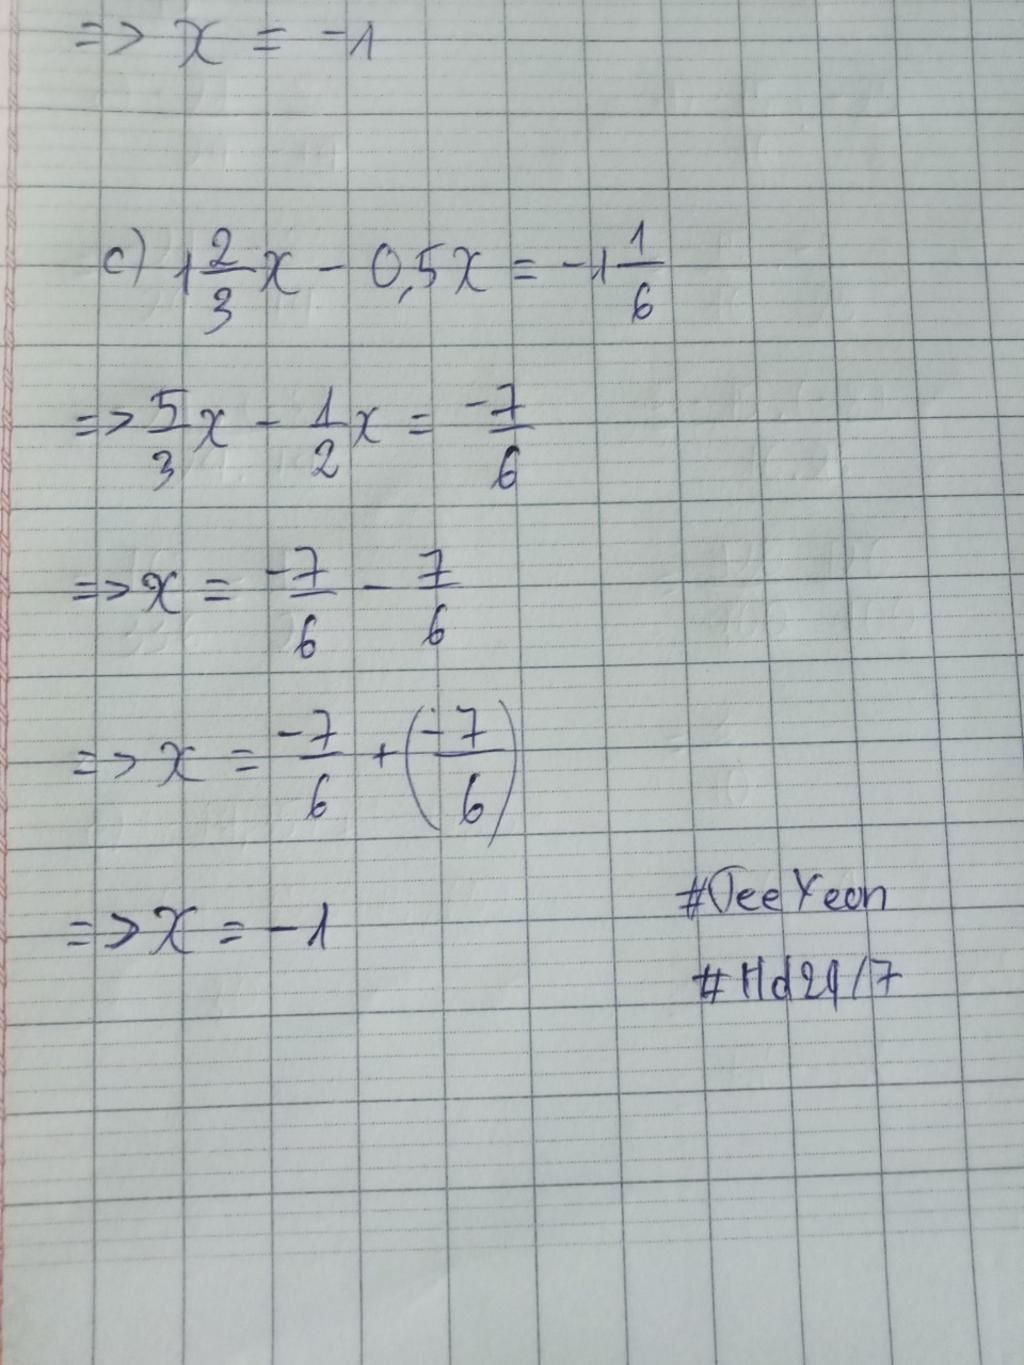 => x = -1
c) 1 2/3 x - 0,5x = -1 1/6
=> 5/3 x - 1/2 x = -7/6
=> x = -7/6 - 7/6
=> x = -7/6 + (-7/6)
=> x = -1
#JeeYeon
#Hd24/7